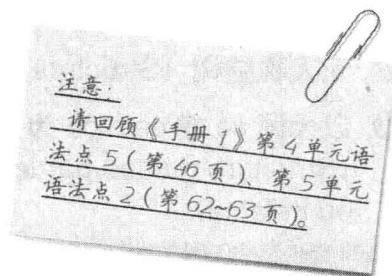 注意:
请回顾《手册1》第4单元语
法点5(第46页)、第5单元
语法点2(第62~63页)。